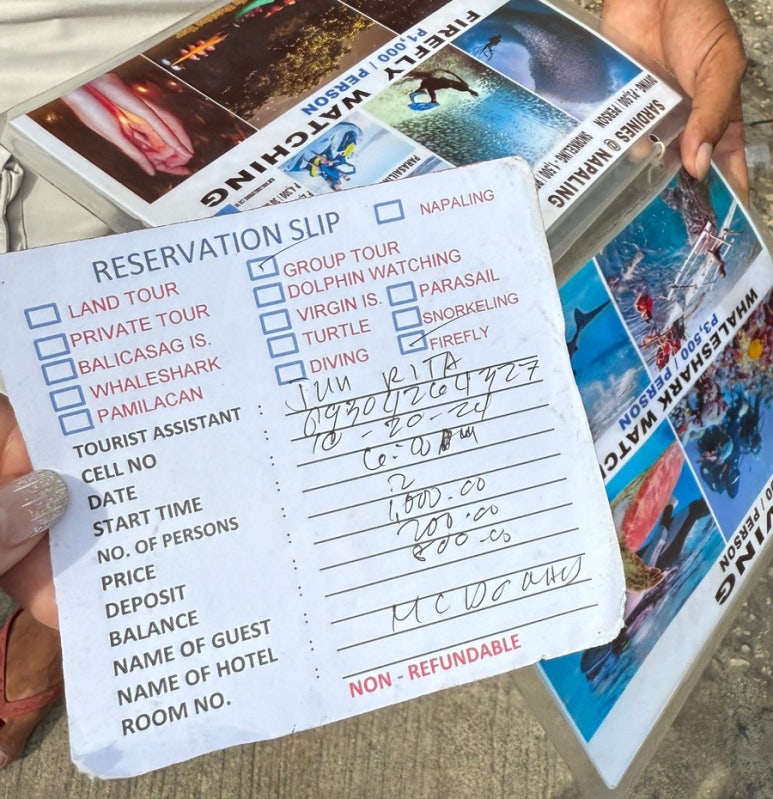 FIREFLY WATCHING
₱1,000 / PERSON
DIVING - ₱2,500 / PERSON
SARDINES @ NAPALING
WHALESHARK WATCH
₱3,500 / PERSON
RESERVATION SLIP
NAPALING
LAND TOUR
PRIVATE TOUR
BALICASAG IS.
WHALESHARK
PAMILACAN
GROUP TOUR
DOLPHIN WATCHING
VIRGIN IS.
TURTLE
DIVING
PARASAIL
SNORKELING
FIREFLY
TOURIST ASSISTANT : JUN RITA
CELL NO : 09304264327
DATE : 10-20-24
START TIME : 6:00
NO. OF PERSONS : 2
PRICE : 1,000.00
DEPOSIT : 200.00
BALANCE : 800.00
NAME OF GUEST :
NAME OF HOTEL : MCDONALD
ROOM NO. :
NON - REFUNDABLE